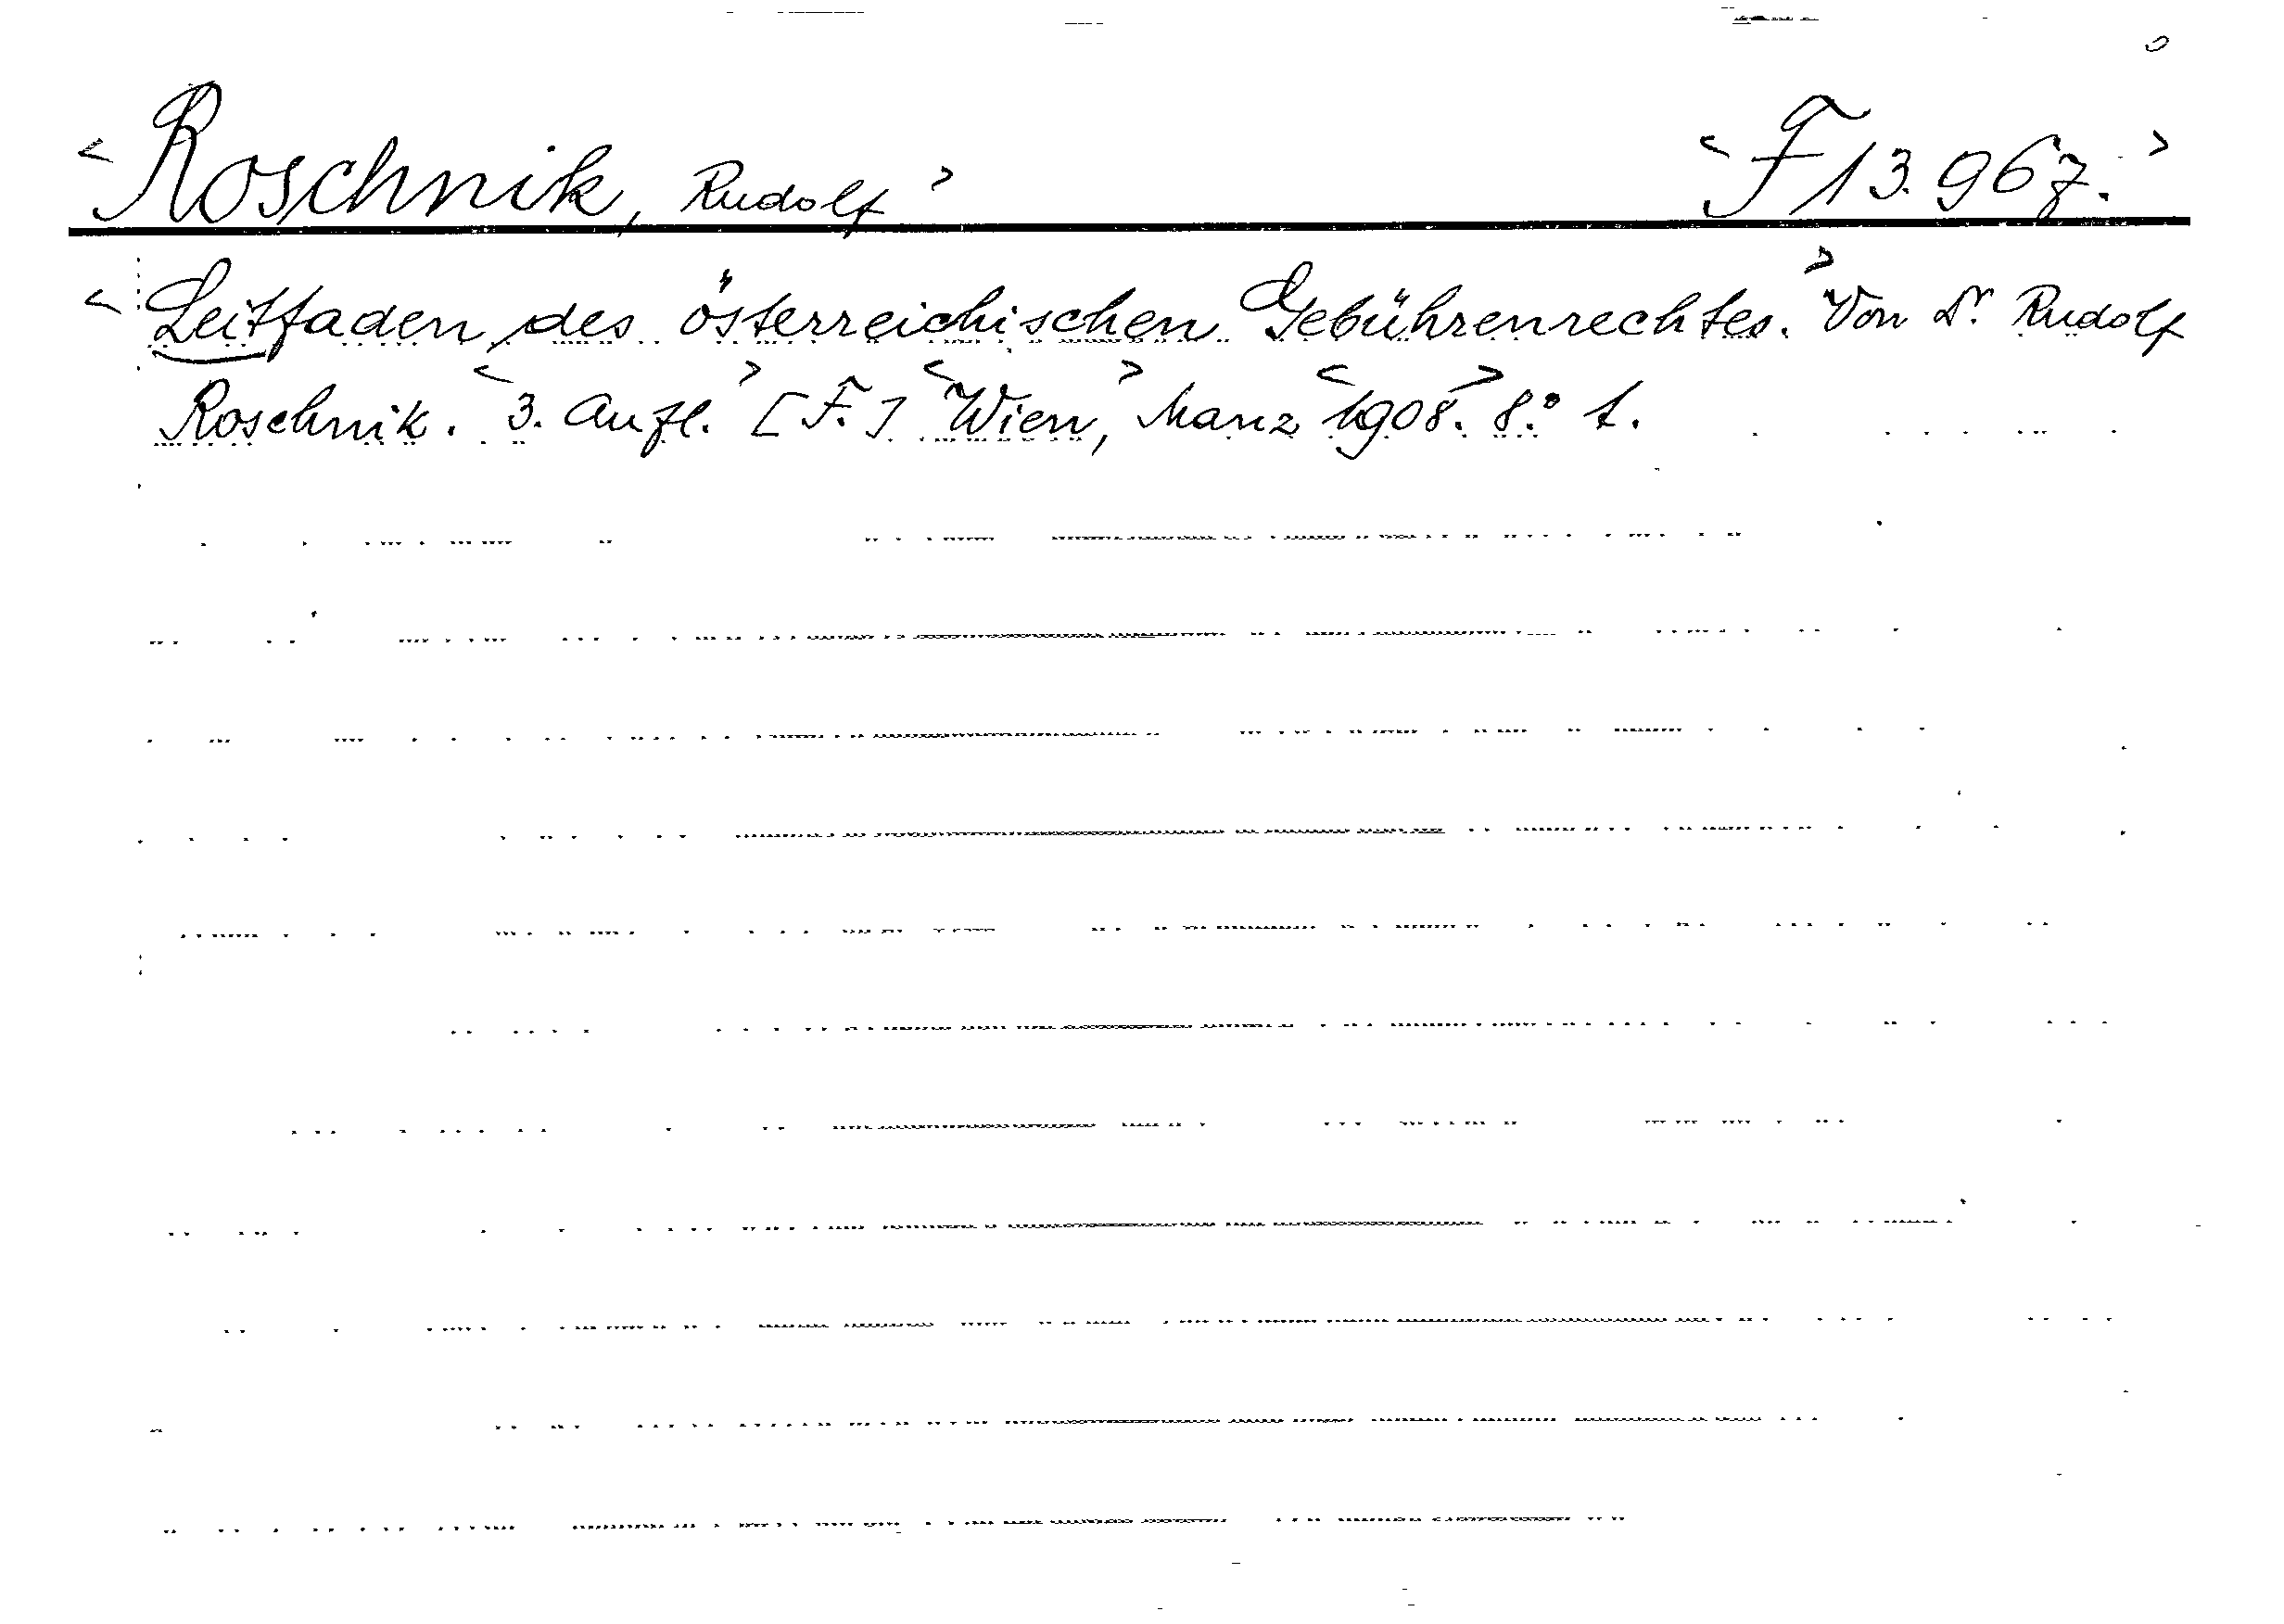 <Roschnik, Rudolf> <F 13.967.>
<Leitfaden des österreichischen Gebührenrechtes.> Von Dr. Rudolf
Roschnik. <3. Aufl.> [F.] <Wien,> Manz <1908.> 8.° 1.